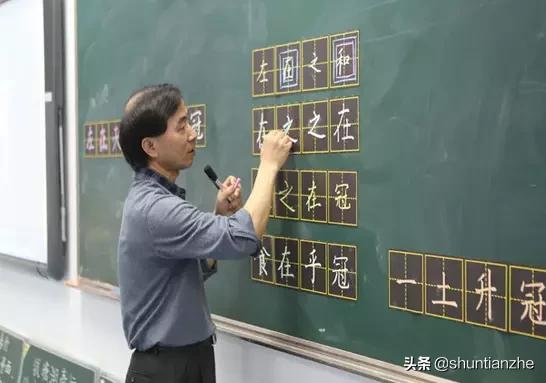 左在之和
在之之在
之在冠
食在乎冠
左在
冠
一土升冠
头条 @shuntianzhe